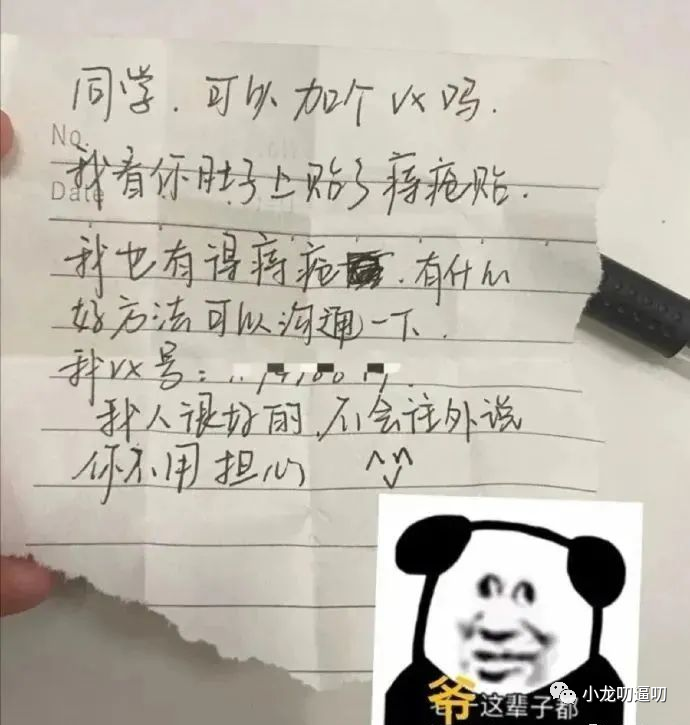 同学.可以加个vx吗.
No.
我看你肚子上贴了痔疮贴.
Date
我也有得痔疮.有什么
好方法可以沟通一下.
我vx号:
我人很好的,不会往外说
你不用担心
爷这辈子都
小龙叨逼叨